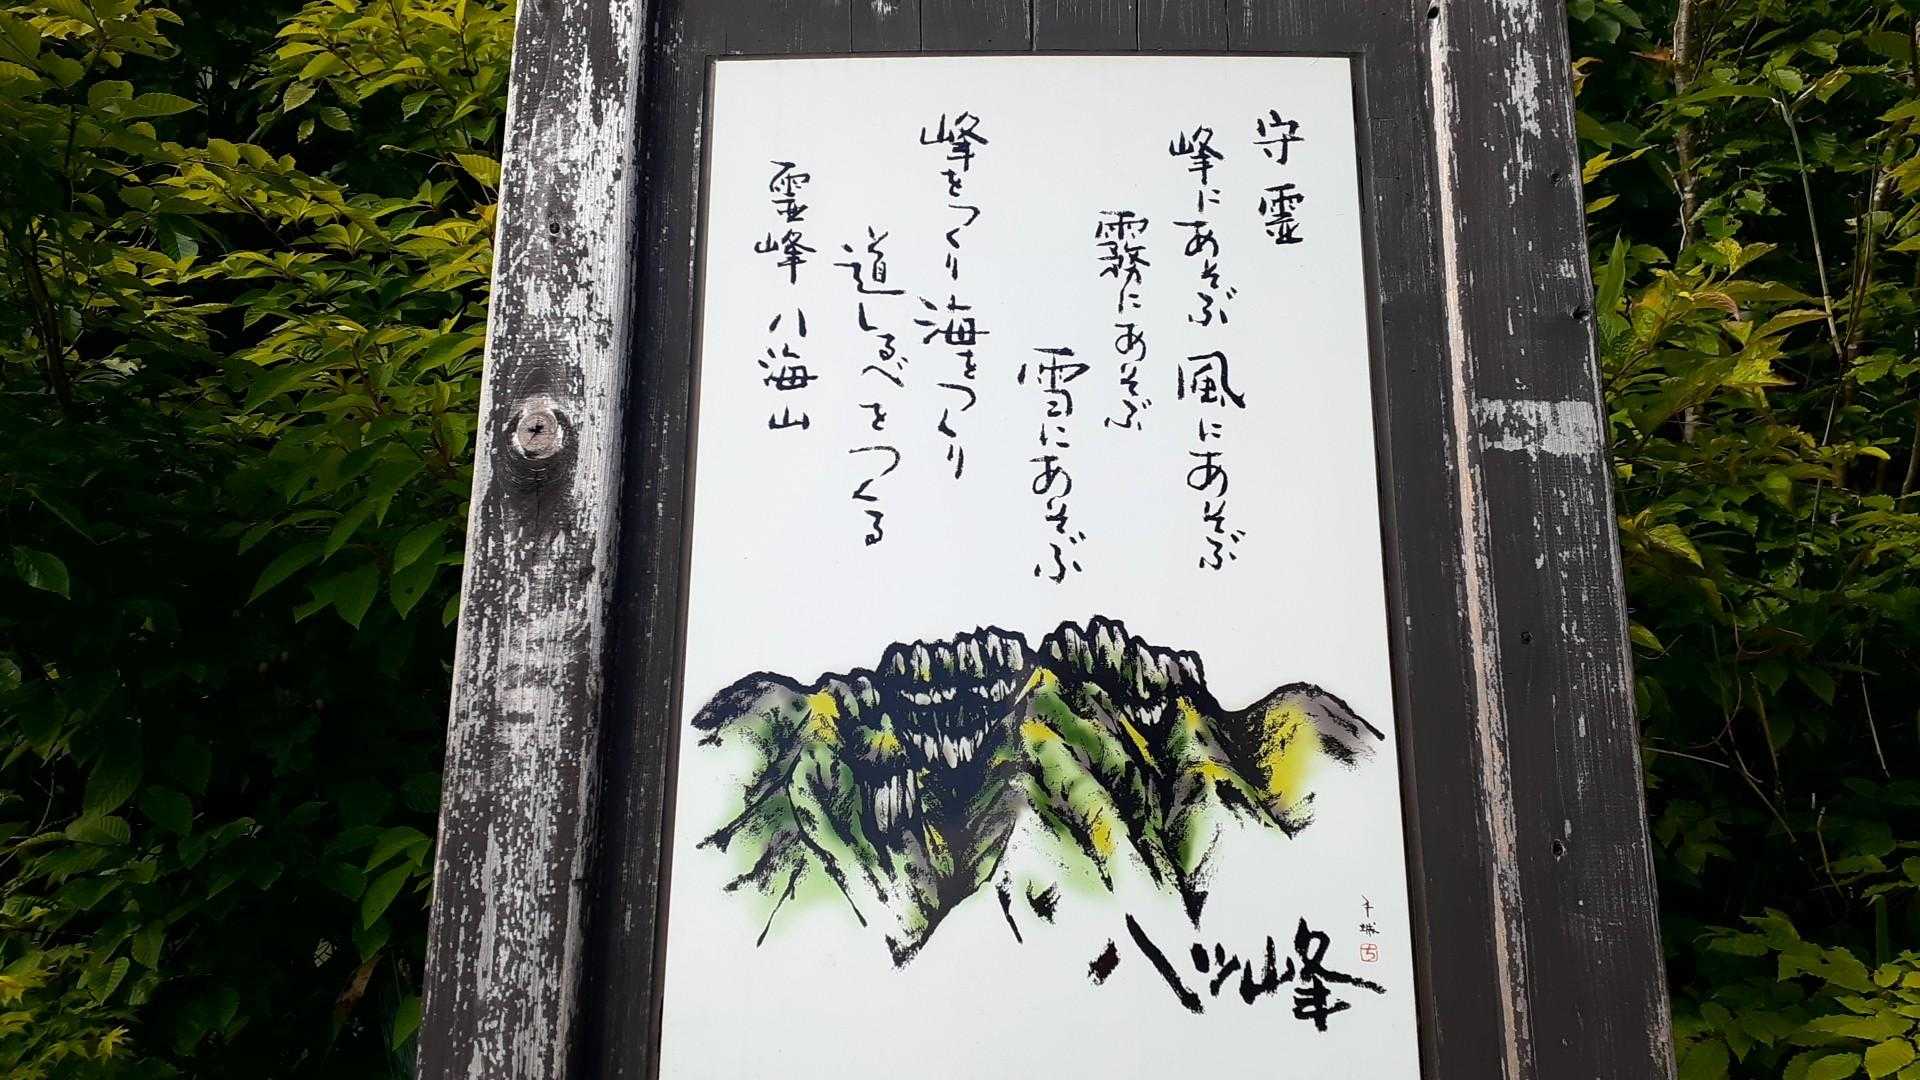 守霊
峰にあそぶ 風にあそぶ
霧にあそぶ
雪にあそぶ
峰をつくり海をつくり
道しるべをつくる
霊峰八海山
八ツ峰
千城
ち